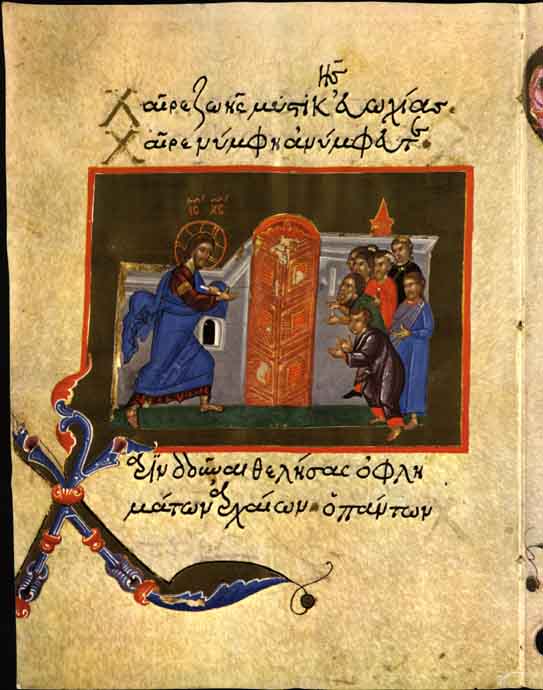 Χαῖρε ζωῆς μυστικῆς εὐωχίας·
Χαῖρε νύμφη ἀνύμφευτε·
ΙC ΧC
Χάριν δοῦναι θελήσας ὀφλη
μάτων ἀρχαίων· ὁ πάντων